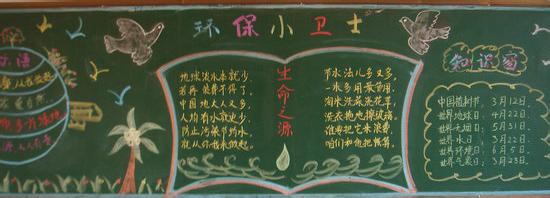 环保小卫士
语
地球淡水本就少,
若再浪费不得了,
中国地大人又多,
人均有水就更少,
防止污染节约水,
就从你我做起。
生命之源
节水法儿多又多,
一水多用最节用,
淘水洗菜洗花草,
洗衣拖地擦玻璃,
谁要把它来浪费,
咱们和他把账算。
知识窗
中国植树节,3月12日。
世界地球日,4月22日
世界无烟日,5月31日
世界水日,3月22日
世界环境日,6月5日
世界气象日,3月23日。